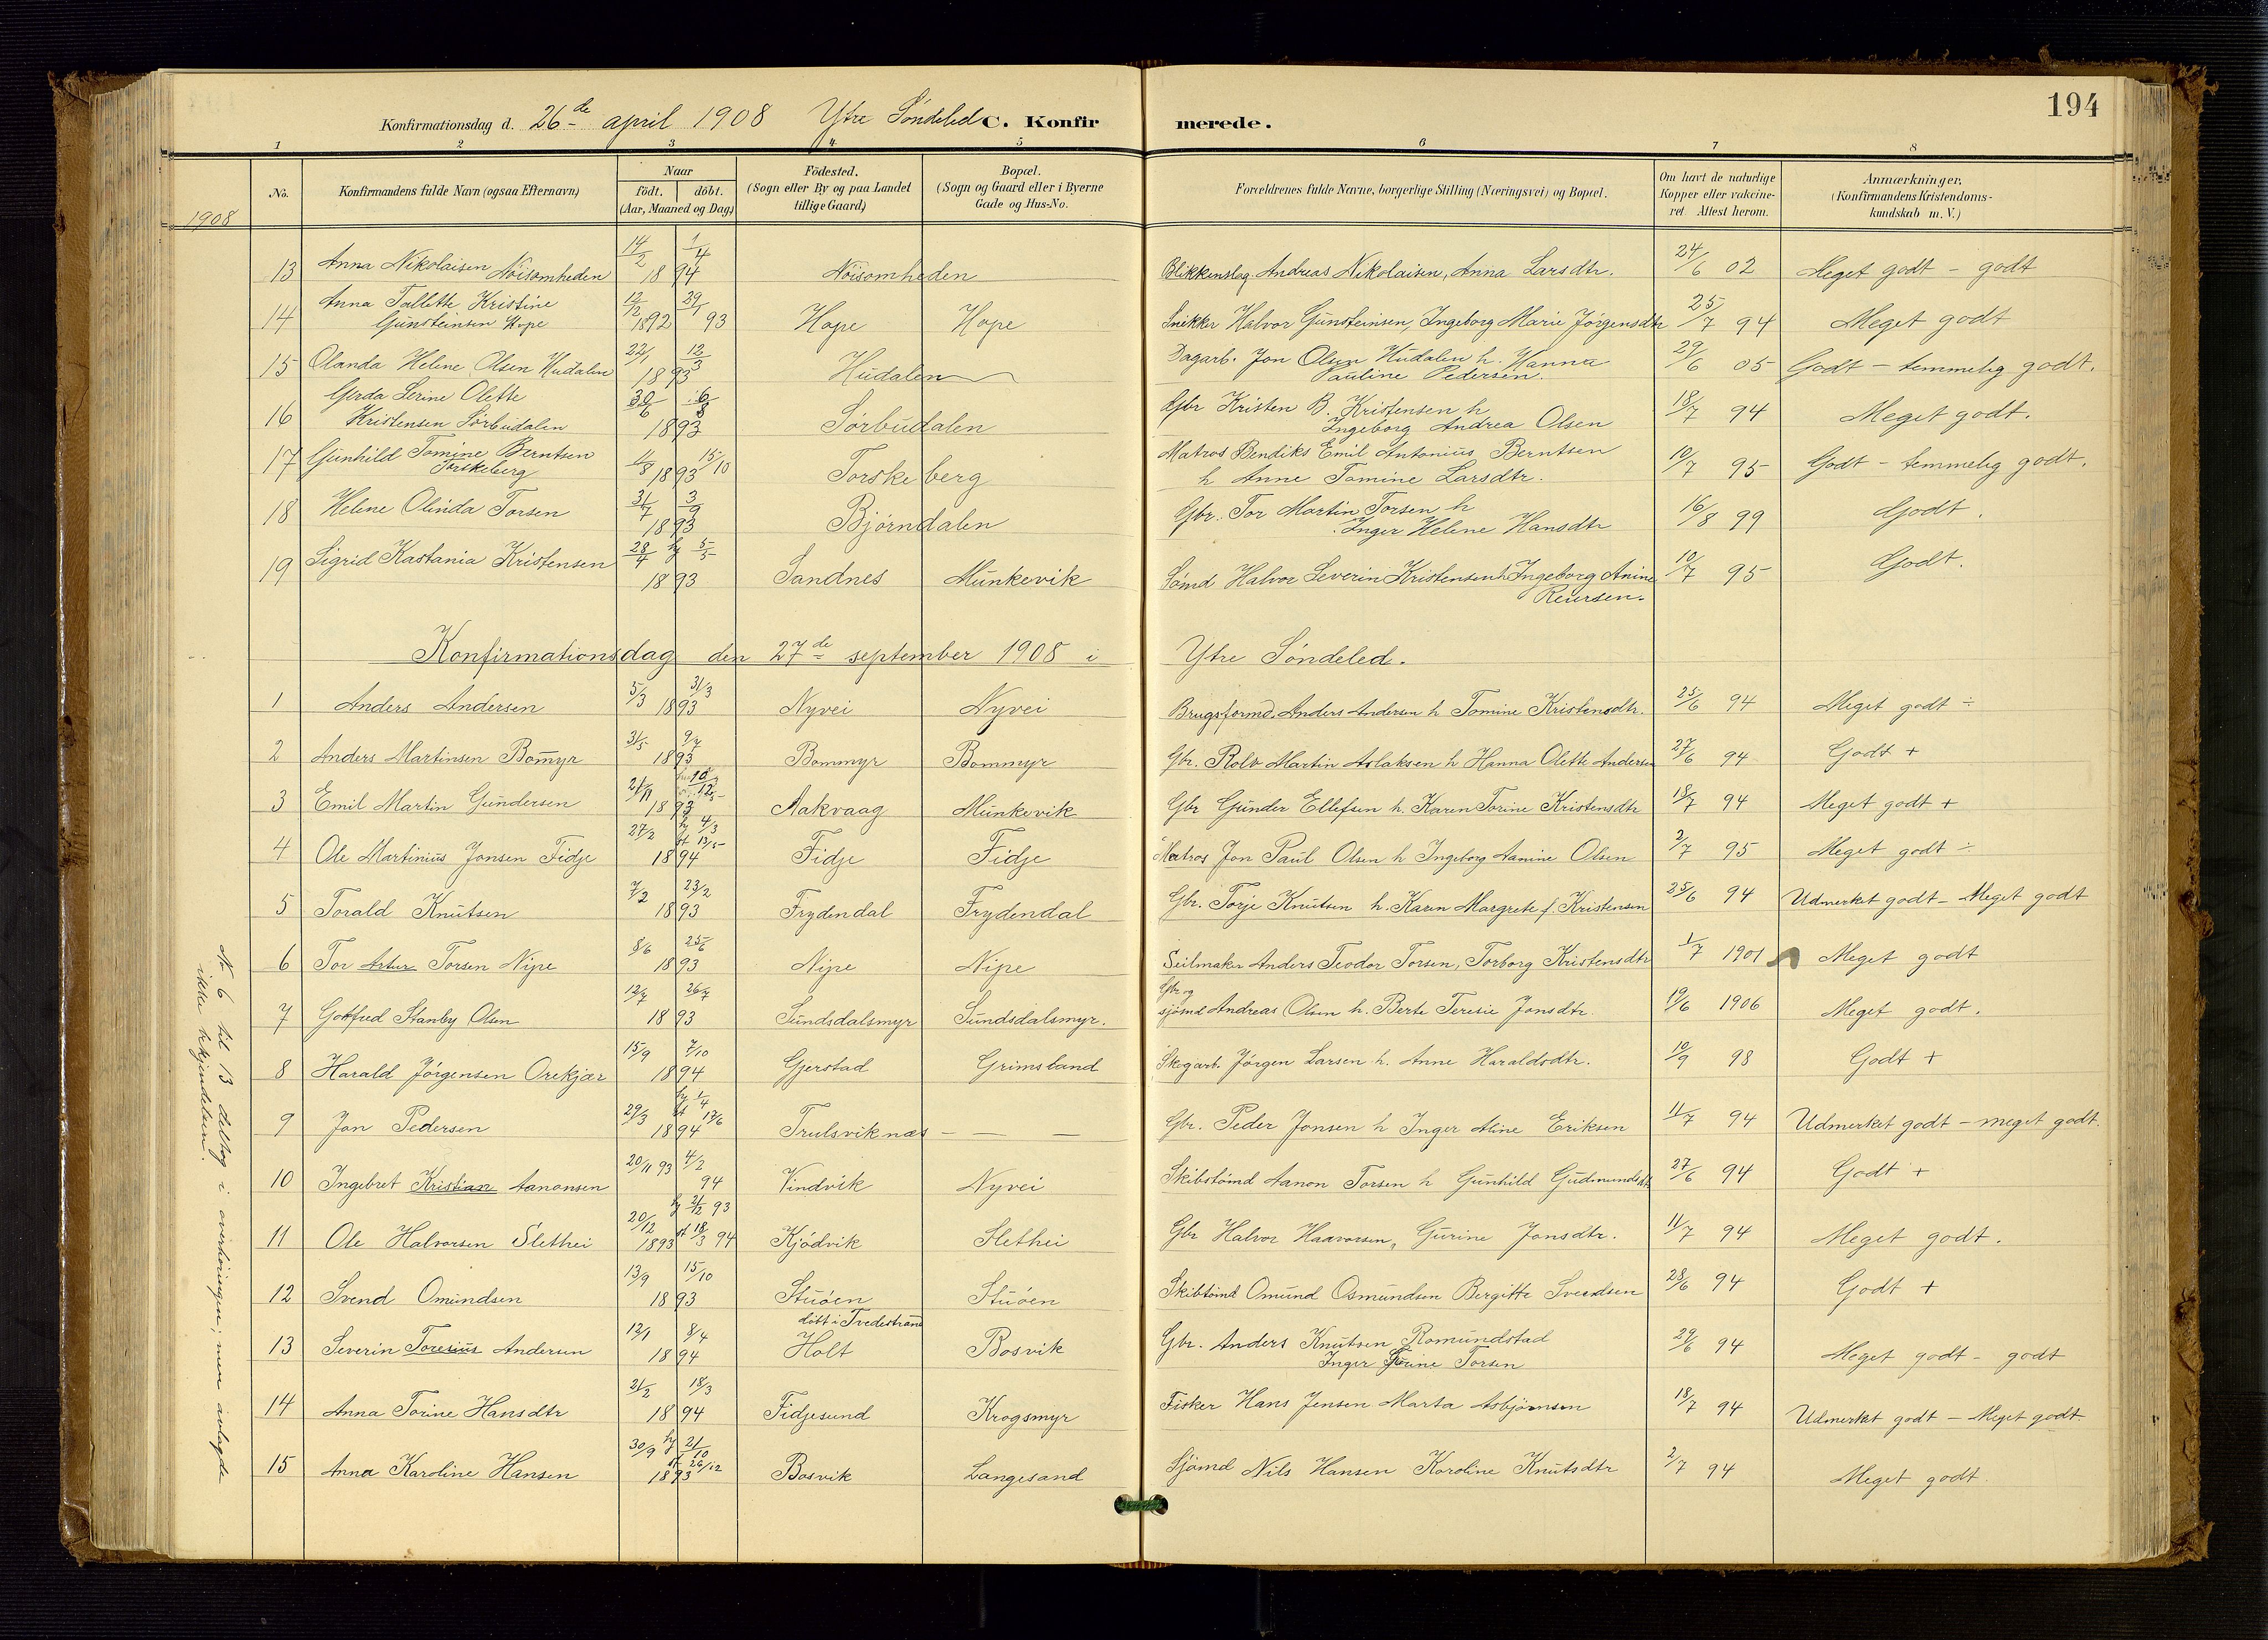 194
Konfirmationsdag d. 26de april 1908 Ytre Söndeled C. Konfirmerede.
1 2 3 4 5 6 7 8
No. Konfirmandens fulde Navn (ogsaa Efternavn) Naar födt. döbt. (Aar, Maaned og Dag) Födested. (Sogn eller By og paa Landet tillige Gaard) Bopæl. (Sogn og Gaard eller i Byerne Gade og Hus-No. Forældrenes fulde Navne, borgerlige Stilling (Næringsvei) og Bopæl. Om havt de naturlige Kopper eller vakcineret Attest herom. Anmærkninger. (Konfirmandens Kristendomskundskab m. V.)
1908
13 Anna Nikolaisen Nöisomheden 14/2 1/4 1894 Nöisomheden Blikkenslag. Andreas Nikolaisen, Anna Larsdtr. 24/6 02 Meget godt - godt
14 Anna Tallette Kristine Gunsteinsen Hope 12/12 1892 29/1 93 Hope Hope Snikker Halvor Gunsteinsen, Ingeborg Marie Jörgensdtr 25/7 94 Meget godt
15 Olanda Helene Olsen Hudalen 22/1 12/3 1893 Hudalen Dagarb. Jon Olsen Hudalen h. Hanna Pauline Pedersen. 29/6 05 Godt - temmelig godt.
16 Gerda Serine Olette Kristensen Sörbudalen 30/6 6/8 1893 Sörbudalen Gbr Kristen B. Kristensen h Ingeborg Andrea Olsen 18/7 94 Meget godt.
17 Gunhild Tomine Berntsen Torskeberg 1/8 15/10 1893 Torskeberg Matros Bendiks Emil Antonius Berntsen h Anne Tomine Larsdtr. 10/7 95 Godt - temmelig godt.
18 Helene Olinda Torsen 31/7 3/9 1893 Björndalen Gbr. Tor Martin Torsen h Inger Helene Hansdtr 16/8 99 Godt.
19 Sigrid Kastania Kristensen 28/4 hj 5/5 1893 Sandnes Munkevik Sömd Halvor Severin Kristensen h Ingeborg Anine Reiersen. 10/7 95 Godt.
Konfirmationsdag den 27de september 1908 i Ytre Söndeled.
1 Anders Andersen 5/3 31/3 1893 Nyvei Nyvei Brugsformd. Anders Andersen h Tomine Kristensdtr. 25/6 94 Meget godt ÷
2 Anders Martinsen Bom̄yr 31/5 9/7 1893 Bommyr Bommyr Gbr. Rolv Martin Aslaksen h Hanna Olette Andersen 27/6 94 Godt +
3 Emil Martin Gundersen 21/11 10/12 1893 Aakvaag Munkevik Gbr Gunder Ellefsen h. Karen Torine Kristensdtr 18/7 94 Meget godt +
4 Ole Martinius Jonsen Fidje 27/2 hj 4/3 st 13/5 1894 Fidje Fidje Matros Jon Paul Olsen h Ingeborg Aanine Olsen 2/7 95 Meget godt ÷
5 Torald Knutsen 7/2 23/2 1893 Frydendal Frydendal Gbr. Torje Knutsen h. Karen Margrete f. Kristensen 25/6 94 Udmerket godt - Meget godt
6 Tor Artur Torsen Nipe 8/6 25/6 1893 Nipe Nipe Seilmaker Anders Teodor Torsen, Torborg Kristensdtr 1/7 1901 Meget godt
7 Gotfred Stanby Olsen 12/7 26/7 1893 Sundsdalsmyr Sundsdalsmyr. Gbr og sjömd Andreas Olsen h. Berte Teresie Jonsdtr. 19/6 1906 Meget godt.
8 Harald Jörgensen Orekjær 15/9 7/10 1894 Gjerstad Grimsland Skogarb. Jörgen Larsen h. Anne Haraldsdtr. 10/9 98 Godt +
9 Jon Pedersen 29/3 hj 1/4 st 17/6 1894 Trulsviknæs - - - Gbr. Peder Jonsen h Inger Aline Eriksen 11/7 94 Udmerket godt - meget godt.
10 Ingebret Kristian Aanonsen 20/11 93 4/2 94 Vindvik Nyvei Skibstömd Aanon Torsen h Gunhild Gudmundsdtr 27/6 94 Godt +
11 Ole Halvorsen Slethei 20/12 1893 hj 21/12 93 st 18/3 94 Kjödvik Slethei Gbr Halvor Haavorsen, Gurine Jonsdtr. 11/7 94 Meget godt.
12 Svend Omundsen 13/9 15/10 1893 Stuöen Stuöen Skibstömd Omund Osmundsen Bergitte Svendsen 28/6 94 Godt +
13 Severin Toresius Andersen 12/1 8/4 1894 döbt i Tvedestrand Holt Bosvik Gbr. Anders Knutsen Romundstad Inger Torine Torsen 29/6 94 Meget godt - godt
14 Anna Torine Hansdtr 21/2 18/3 1894 Fidjesund Krogsmyr Fisker Hans Jensen Marta Asbjörnsen 18/7 94 Udmerket godt - Meget godt.
15 Anna Karoline Hansen 30/9 hj 21/10 st 26/12 1893 Bosvik Langesand Sjömd Nils Hansen Karoline Knutsdtr 2/7 94 Meget godt
N 6 til 13 deltog i overhöringen; men avlagde
ikke bekjendelsen.